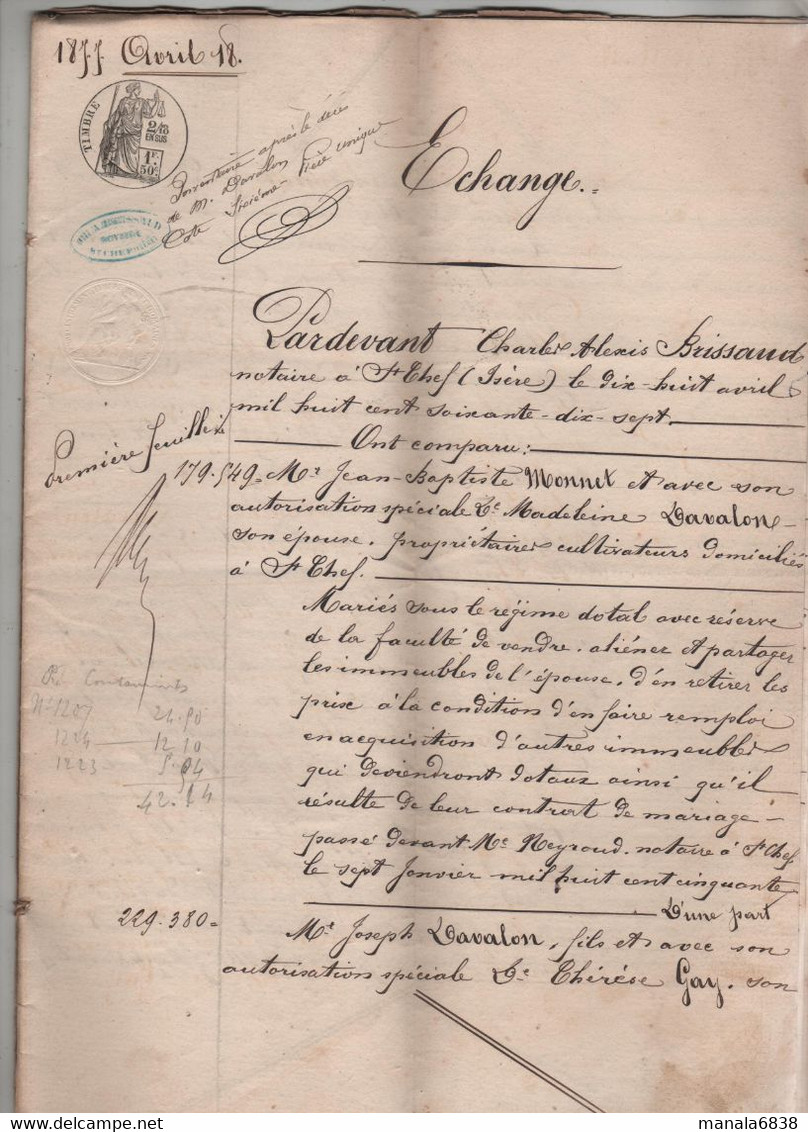 1877 Avril 18.
TIMBRE
2/10
EN SUS
1F.
50c.
Inventaire après le décès
de M. Davalon
Cote Sixième - Pièce unique
Echange.
BRISSAUD
NOTAIRE
ST CHEF
Pardevant Charles Alexis Brissaud
notaire à St Chef (Isère) le dix-huit avril
mil huit cent soixante-dix-sept.
Ont comparu:
Première feuille
179.549= Mr. Jean-Baptiste Monnet et avec son
autorisation spéciale De. Madeleine Davalon
son épouse. propriétaires cultivateurs domiciliés
à St Chef.
Mariés sous le régime dotal avec réserve
de la faculté de vendre. aliéner et partager
les immeubles de l'épouse. d'en retirer les
prix à la condition d'en faire remploi
en acquisition d'autres immeubles
qui deviendront dotaux ainsi qu'il
résulte de leur contrat de mariage
passé devant Me Neyroud. notaire à St Chef
le sept Janvier mil huit cent cinquante
D'une part
Contenants
No 1207 24.90
1224 12 10
1223 5.04
42.04
229.380=
Mr. Joseph Davalon, fils et avec son
autorisation spéciale De. Thérèse Gay. son
manala6838